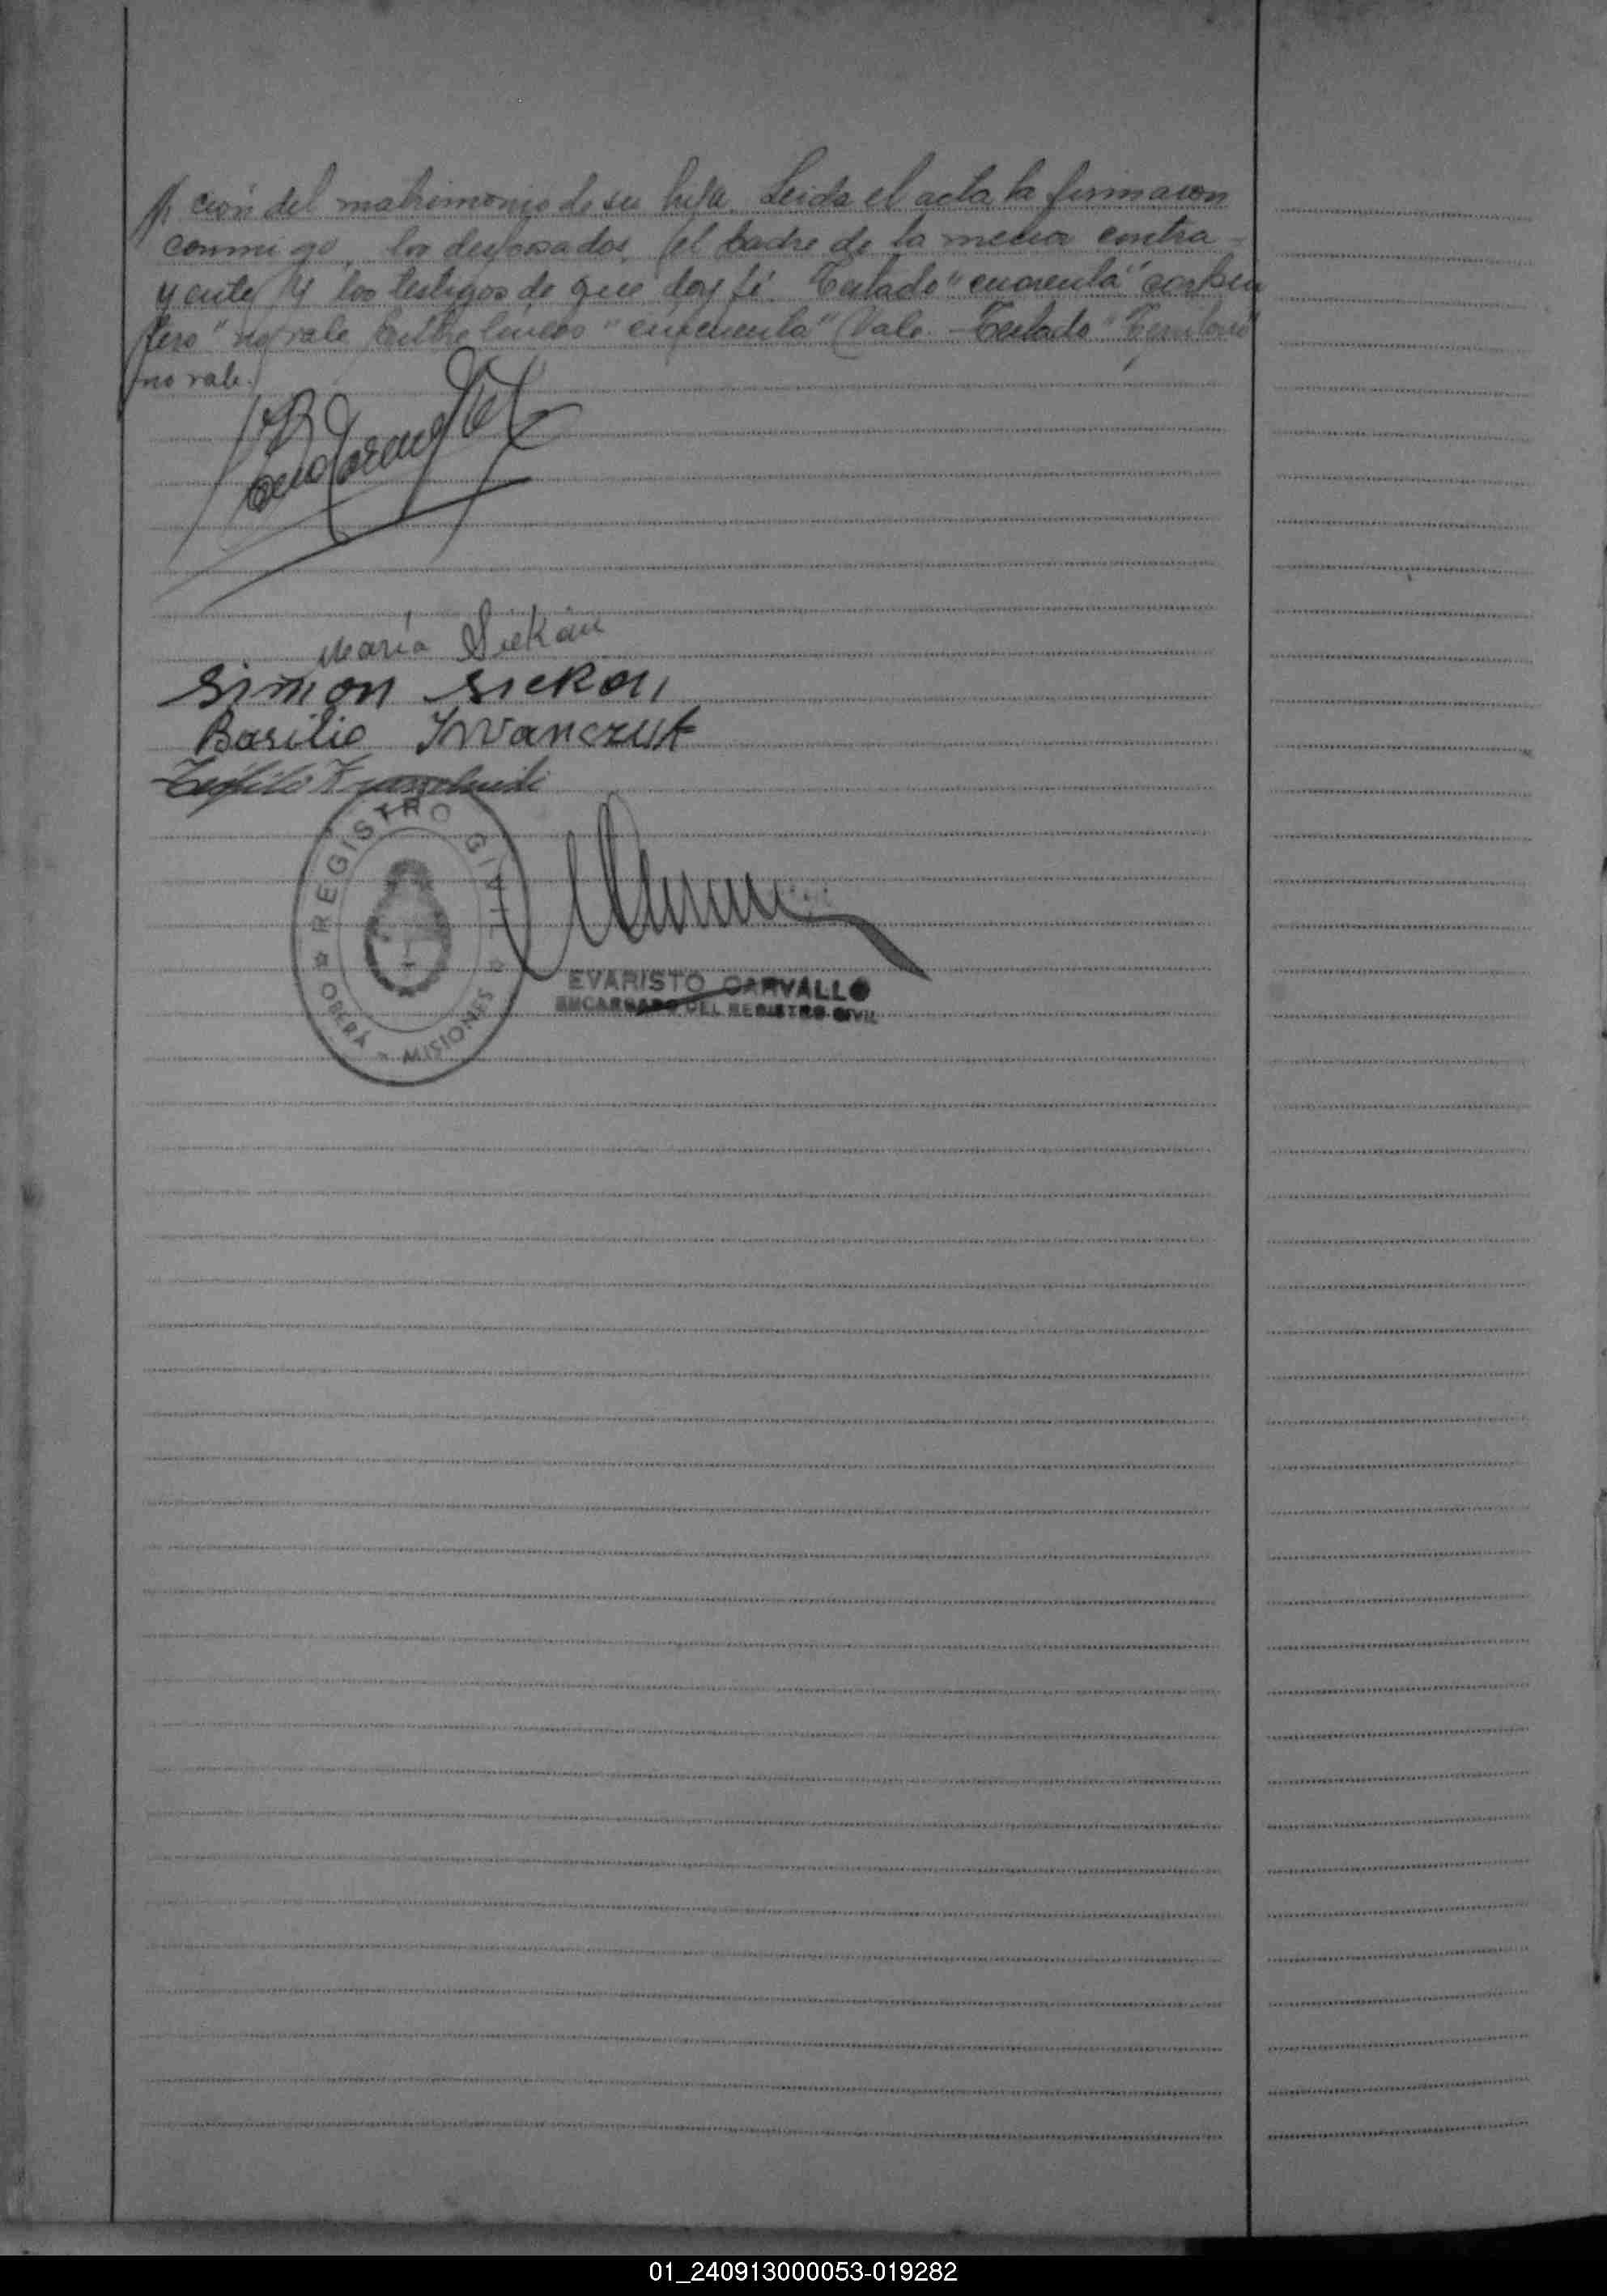 ción del matrimonio de su hija. Leida el acta la firmaron
conmigo, los desposados, el padre de la menor contra-
yente y los testigos de que doy fé. Testado "cuarenta" carpin
tero" no vale. entre lineas "cincuenta" Vale. Testado "Territorio"
no vale.
María Siekan
Simon Siekan
Basilio Iwanczuk
REGISTRO CIVIL
OBERÁ MISIONES
EVARISTO CARVALLO
ENCARGADO DEL REGISTRO CIVIL
01_240913000053-019282